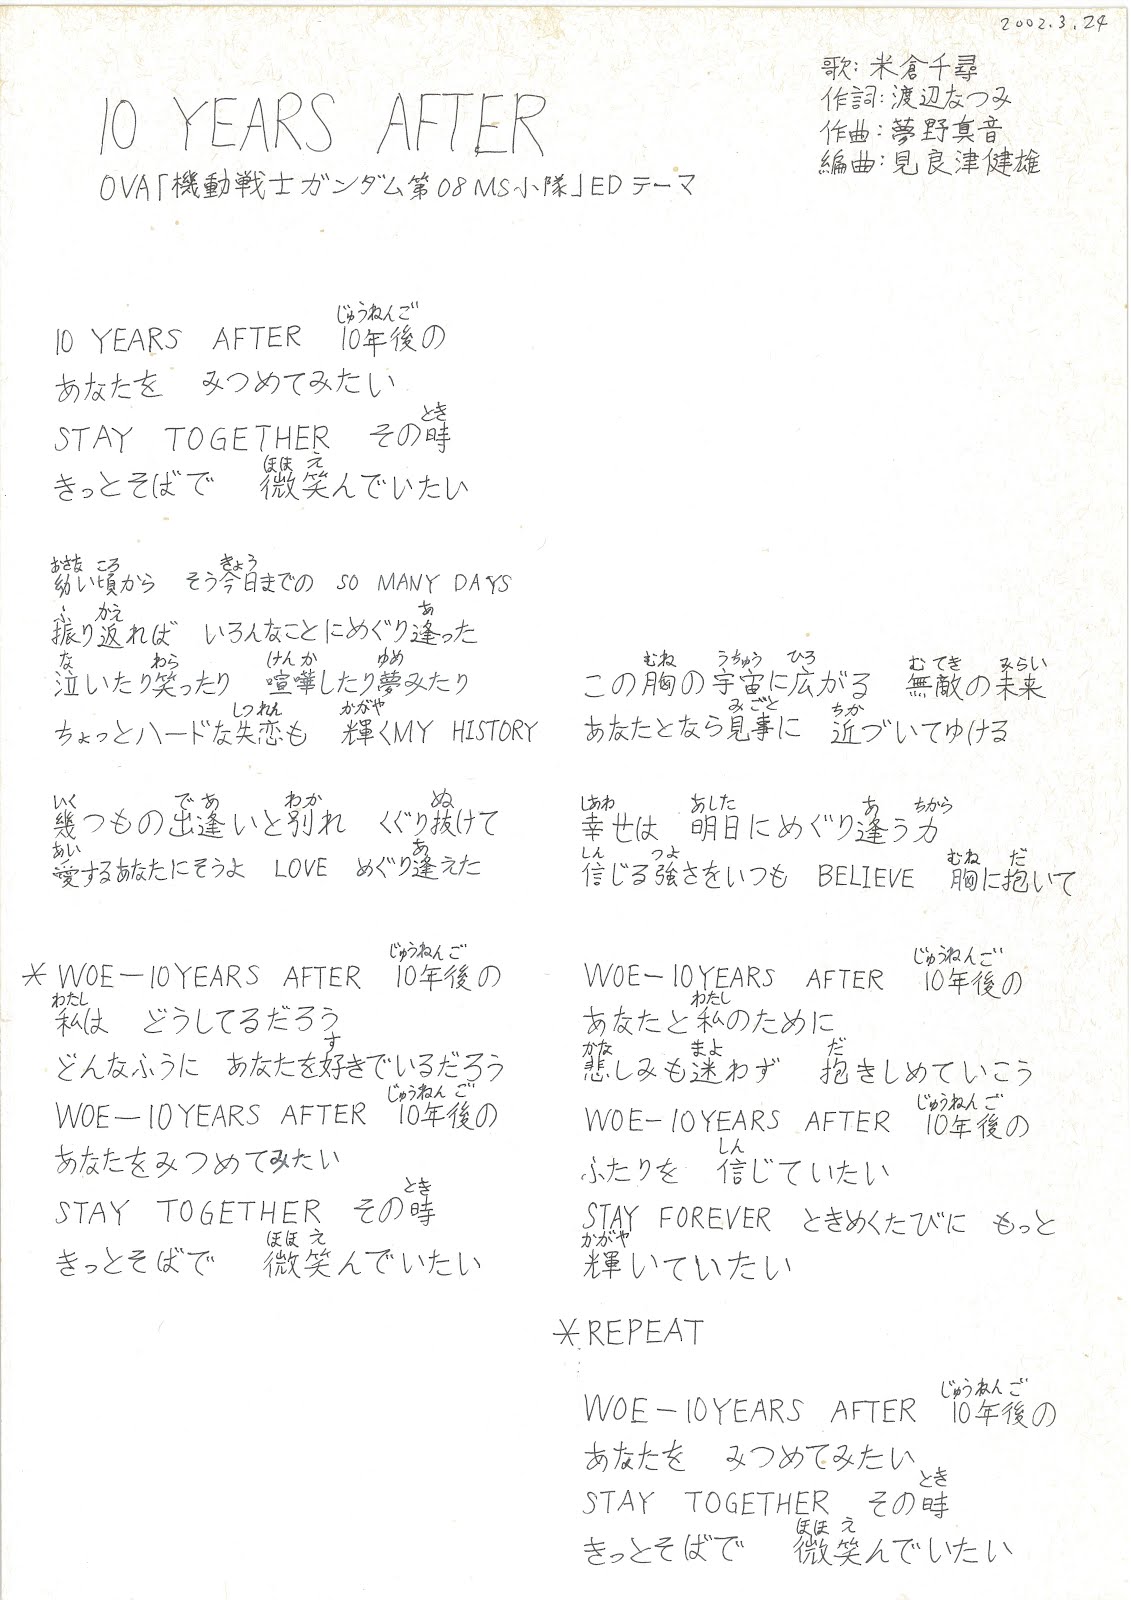 2002.3.24
歌:米倉千尋
作詞:渡辺なつみ
作曲:夢野真音
編曲:見良津健雄
10 YEARS AFTER
OVA「機動戦士ガンダム第08MS小隊」EDテーマ
じゅうねんご
10 YEARS AFTER 10年後の
あなたを みつめてみたい
とき
STAY TOGETHER その時
ほほ え
きっとそばで 微笑んでいたい
おさな ころ きょう
幼い頃から そう今日までの SO MANY DAYS
ふ かえ あ
振り返れば いろんなことにめぐり逢った
な わら けんか ゆめ
泣いたり笑ったり 喧嘩したり夢みたり
しつれん かがや
ちょっとハードな失恋も 輝くMY HISTORY
いく であ わか ぬ
幾つもの出逢いと別れ くぐり抜けて
あい あ
愛するあなたにそうよ LOVE めぐり逢えた
じゅうねんご
* WOE-10YEARS AFTER 10年後の
わたし
私は どうしてるだろう
す
どんなふうに あなたを好きでいるだろう
じゅうねんご
WOE-10YEARS AFTER 10年後の
あなたをみつめてみたい
とき
STAY TOGETHER その時
ほほ え
きっとそばで 微笑んでいたい
むね うちゅう ひろ むてき みらい
この胸の宇宙に広がる 無敵の未来
みごと ちか
あなたとなら見事に 近づいてゆける
しあわ あした あ ちから
幸せは 明日にめぐり逢う力
しん つよ むね だ
信じる強さをいつも BELIEVE 胸に抱いて
じゅうねんご
WOE-10YEARS AFTER 10年後の
わたし
あなたと私のために
かな まよ だ
悲しみも迷わず 抱きしめていこう
じゅうねんご
WOE-10YEARS AFTER 10年後の
しん
ふたりを 信じていたい
STAY FOREVER ときめくたびに もっと
かがや
輝いていたい
* REPEAT
じゅうねんご
WOE-10YEARS AFTER 10年後の
あなたを みつめてみたい
とき
STAY TOGETHER その時
ほほ え
きっとそばで 微笑んでいたい